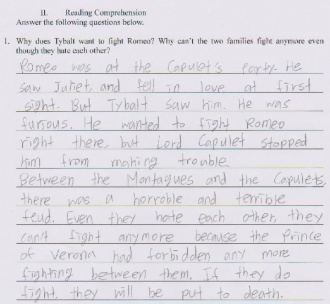 II. Reading Comprehension
Answer the following questions below.
1. Why does Tybalt want to fight Romeo? Why can't the two families fight anymore even
though they hate each other?
Romeo was at the Capulet's party. He
saw Juliet, and fell in love at first
sight. But Tybalt saw him. He was
furious. He wanted to fight Romeo
right there, but Lord Capulet stopped
him from making trouble.
Between the Montagues and the Capulets,
there was a horroble and terrible
feud. Even they hate each other, they
can't fight anymore because the Prince
of Verona had forbidden any more
fighting between them. If they do
fight, they will be put to death.